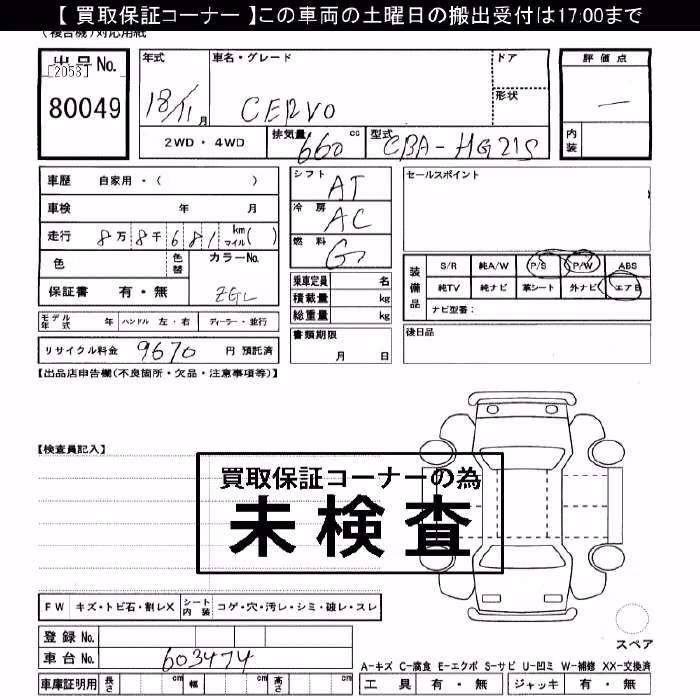 【 買取保証コーナー 】この車両の土曜日の搬出受付は17:00まで
(複合機)対応用紙
出品No. 年式 車名・グレード ドア 評価点
[2053]
80049 18/11月 CERVO 形状 —
2WD・4WD 排気量 660 cc 型式 CBA-HG21S 内装
車歴 自家用・( ) シフト AT セールスポイント
車検 年 月 冷房 AC
走行 8万8千681 km マイル( ) 燃料 G
色 色替 カラーNo. ZGL 乗車定員 名 装備品 S/R 純A/W P/S P/W ABS
保証書 有・無 積載量 kg 純TV 純ナビ 革シート 外ナビ エアB
総重量 kg ナビ型態:
モデル年式 年 ハンドル 左・右 ディーラー・並行 書類期限 後日品
リサイクル料金 9670 円 預託済 月 日
【出品店申告欄(不良箇所・欠品・注意事項等)】
【検査員記入】
買取保証コーナーの為
未検査
FW キズ・トビ石・割レX シート内装 コゲ・穴・汚レ・シミ・破レ・スレ
登録No.
スペア
車台No. 603474
A-キズ C-腐食 E-エクボ S-サビ U-凹ミ W-補修 XX-交換済
車庫証明用 長さ cm 幅 cm 高さ cm 工具 有・無 ジャッキ 有・無